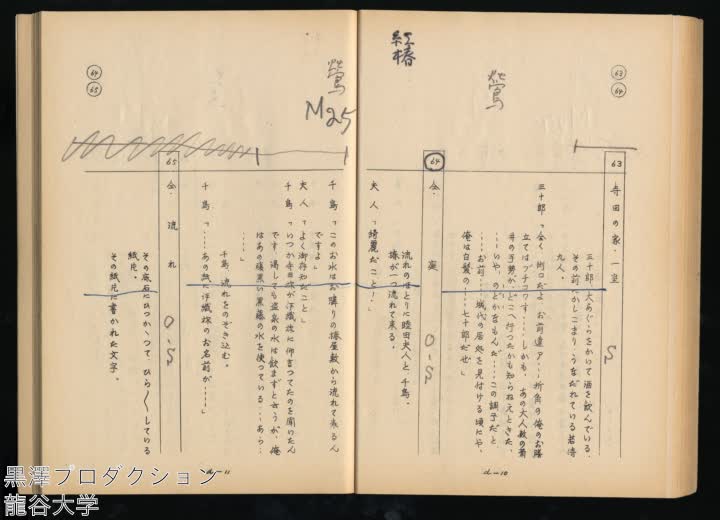 63
64
紅椿
鶯
63
寺田の家・一室
S
三十郎、大あぐらをかいて酒を飲んでいる。
その前にかしこまり、うなだれている若侍
九人。
三十郎「全く、街コだよ、お前達ア……折角の俺のお膳
立てはブチコワす……しかも、あの大人数の菊
井の手勢がどこへ行ったかも知らねえときた、
……いや、のどかなもんだ……この調子だと
……お前……城代の居処を見付ける頃にや、
俺は白髪の……七十郎だぜ」
64
仝・庭
O-S
流れのほとりに睦田夫人と千鳥。
椿が一つ流れて来る。
夫人「綺麗だこと！」
d-10
64
65
鶯
M25
千鳥「このお水はお隣りの椿屋敷から流れて来るん
ですよ」
夫人「よく御存知だこと」
千鳥「いつか寺田様が井織様に仰言ってたのを聞いたん
です 渇しても盗泉の水は飲まずと云うが、俺
はあの腹黒い黒藤の水を使っている……あら…
……」
千鳥、流れをのぞき込む。
千鳥「……あの紙に井織様のお名前が……」
65
仝・流れ
O-S
その底石にひっかゝって、ひら〳〵している
紙片。
その紙片に書かれた文字。
d-11
黒澤プロダクション
龍谷大学